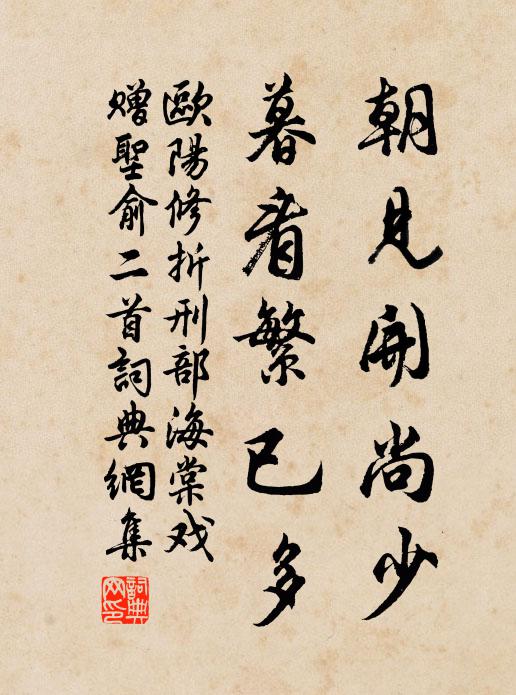 朝見開尚少
暮看繁已多
歐陽修折刑部海棠戏
赠聖俞二首詞典網集
詞典
网印